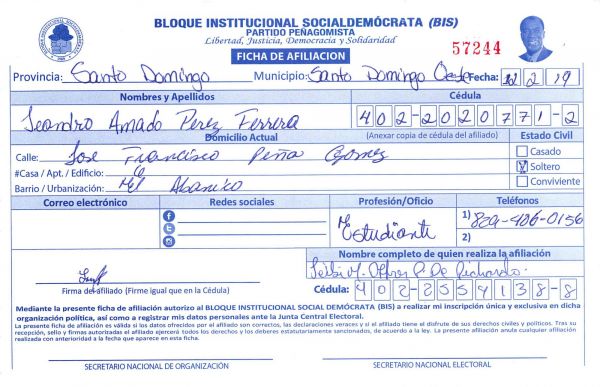 BLOQUE INSTITUCIONAL SOCIALDEMÓCRATA (BIS)
PARTIDO PEÑAGOMISTA
Libertad, Justicia, Democracia y Solidaridad
57244
FICHA DE AFILIACION
Provincia: Santo Domingo Municipio: Santo Domingo Oeste Fecha: 12 2 19
Nombres y Apellidos Cédula
Leandro Amado Perez Ferrera 402-2020771-2
Domicilio Actual (Anexar copia de cédula del afiliado) Estado Civil
Calle: Jose Francisco Peña Gomez Casado
#Casa / Apt. / Edificio: 6 Soltero
Barrio / Urbanización: El Abanico Conviviente
Correo electrónico Redes sociales Profesión/Oficio Teléfonos
Estudiante 1) 829-486-0156
2)
Nombre completo de quien realiza la afiliación
P. De Richardo
Firma del afiliado (Firme igual que en la Cédula) Cédula: 402-2559138-8
Mediante la presente ficha de afiliación autorizo al BLOQUE INSTITUCIONAL SOCIAL DEMÓCRATA (BIS) a realizar mi inscripción única y exclusiva en dicha
organización política, así como a registrar mis datos personales ante la Junta Central Electoral.
La presente ficha de afiliación es válida si los datos ofrecidos por el afiliado son correctos, las declaraciones veraces y si el afiliado tiene el disfrute de sus derechos civiles y políticos. Tras su
recepción, sello y firmas autorizadas el afiliado ejercerá todos los derechos y los deberes estatutariamente sancionados, de acuerdo a la ley. La presente afiliación anula cualquier afiliación
realizada con anterioridad a la fecha que aparece en esta ficha.
SECRETARIO NACIONAL DE ORGANIZACIÓN SECRETARIO NACIONAL ELECTORAL